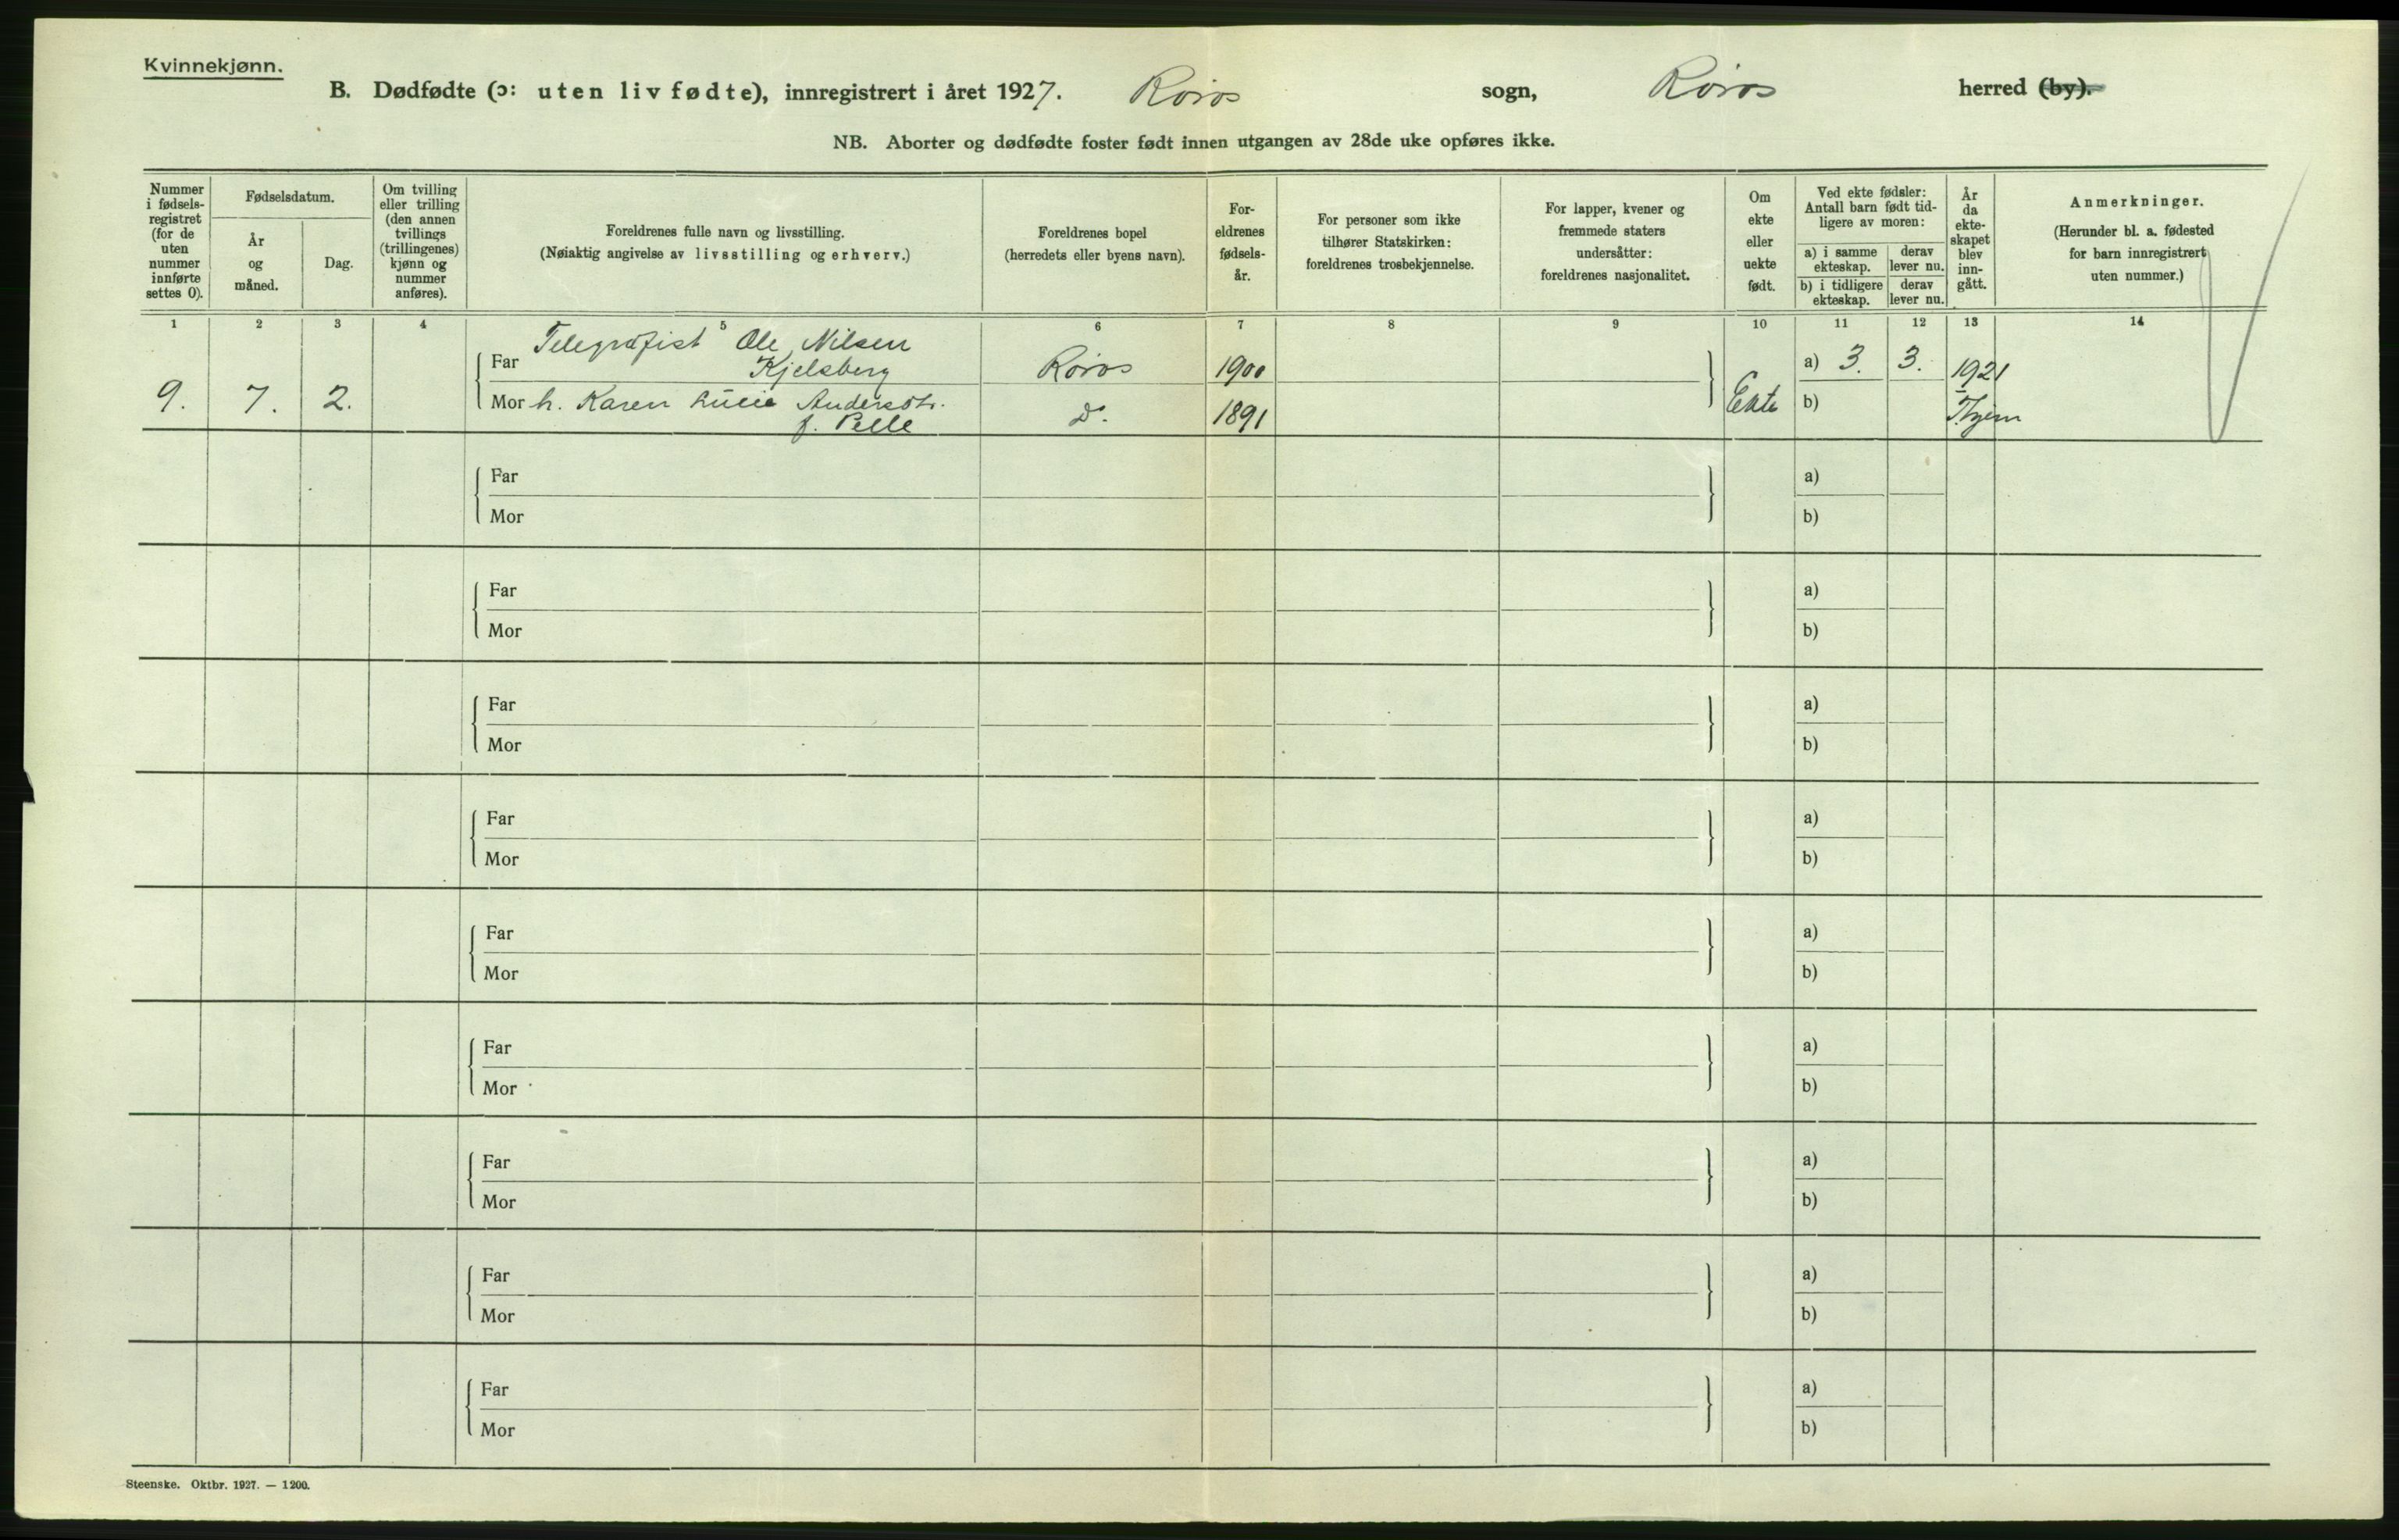 Kvinnekjønn.
B. Dødfødte (ɔ: uten liv fødte), innregistrert i året 1927. Røros sogn, Røros herred (by).
NB. Aborter og dødfødte foster født innen utgangen av 28de uke opføres ikke.
Nummer i fødsels-registret (for de uten nummer innførte settes 0).
Fødselsdatum.
År og måned.
Dag.
Om tvilling eller trilling (den annen tvillings (trillingenes) kjønn og nummer anføres).
Foreldrenes fulle navn og livsstilling.
(Nøiaktig angivelse av livsstilling og erhverv.)
Foreldrenes bopel
(herredets eller byens navn).
For-eldrenes fødsels-år.
For personer som ikke tilhører Statskirken: foreldrenes trosbekjennelse.
For lapper, kvener og fremmede staters undersåtter: foreldrenes nasjonalitet.
Om ekte eller uekte født.
Ved ekte fødsler: Antall barn født tid-ligere av moren:
a) i samme ekteskap.
derav lever nu.
b) i tidligere ekteskap.
derav lever nu.
År da ekte-skapet blev inn-gått.
Anmerkninger.
(Herunder bl. a. fødested for barn innregistrert uten nummer.)
1 2 3 4 5 6 7 8 9 10 11 12 13 14
Telegrafist Ole Nilsen
Far Kjelsberg Røros 1900 a) 3. 3. 1921
9. 7. 2. Mor h. Karen Lucie Andersdtr. Do. 1891 Ekte b)
f. Pelle
Far a)
Mor b)
Far a)
Mor b)
Far a)
Mor b)
Far a)
Mor b)
Far a)
Mor b)
Far a)
Mor b)
Far a)
Mor b)
Far a)
Mor b)
Far a)
Mor b)
Steenske. Oktbr. 1927. — 1200.